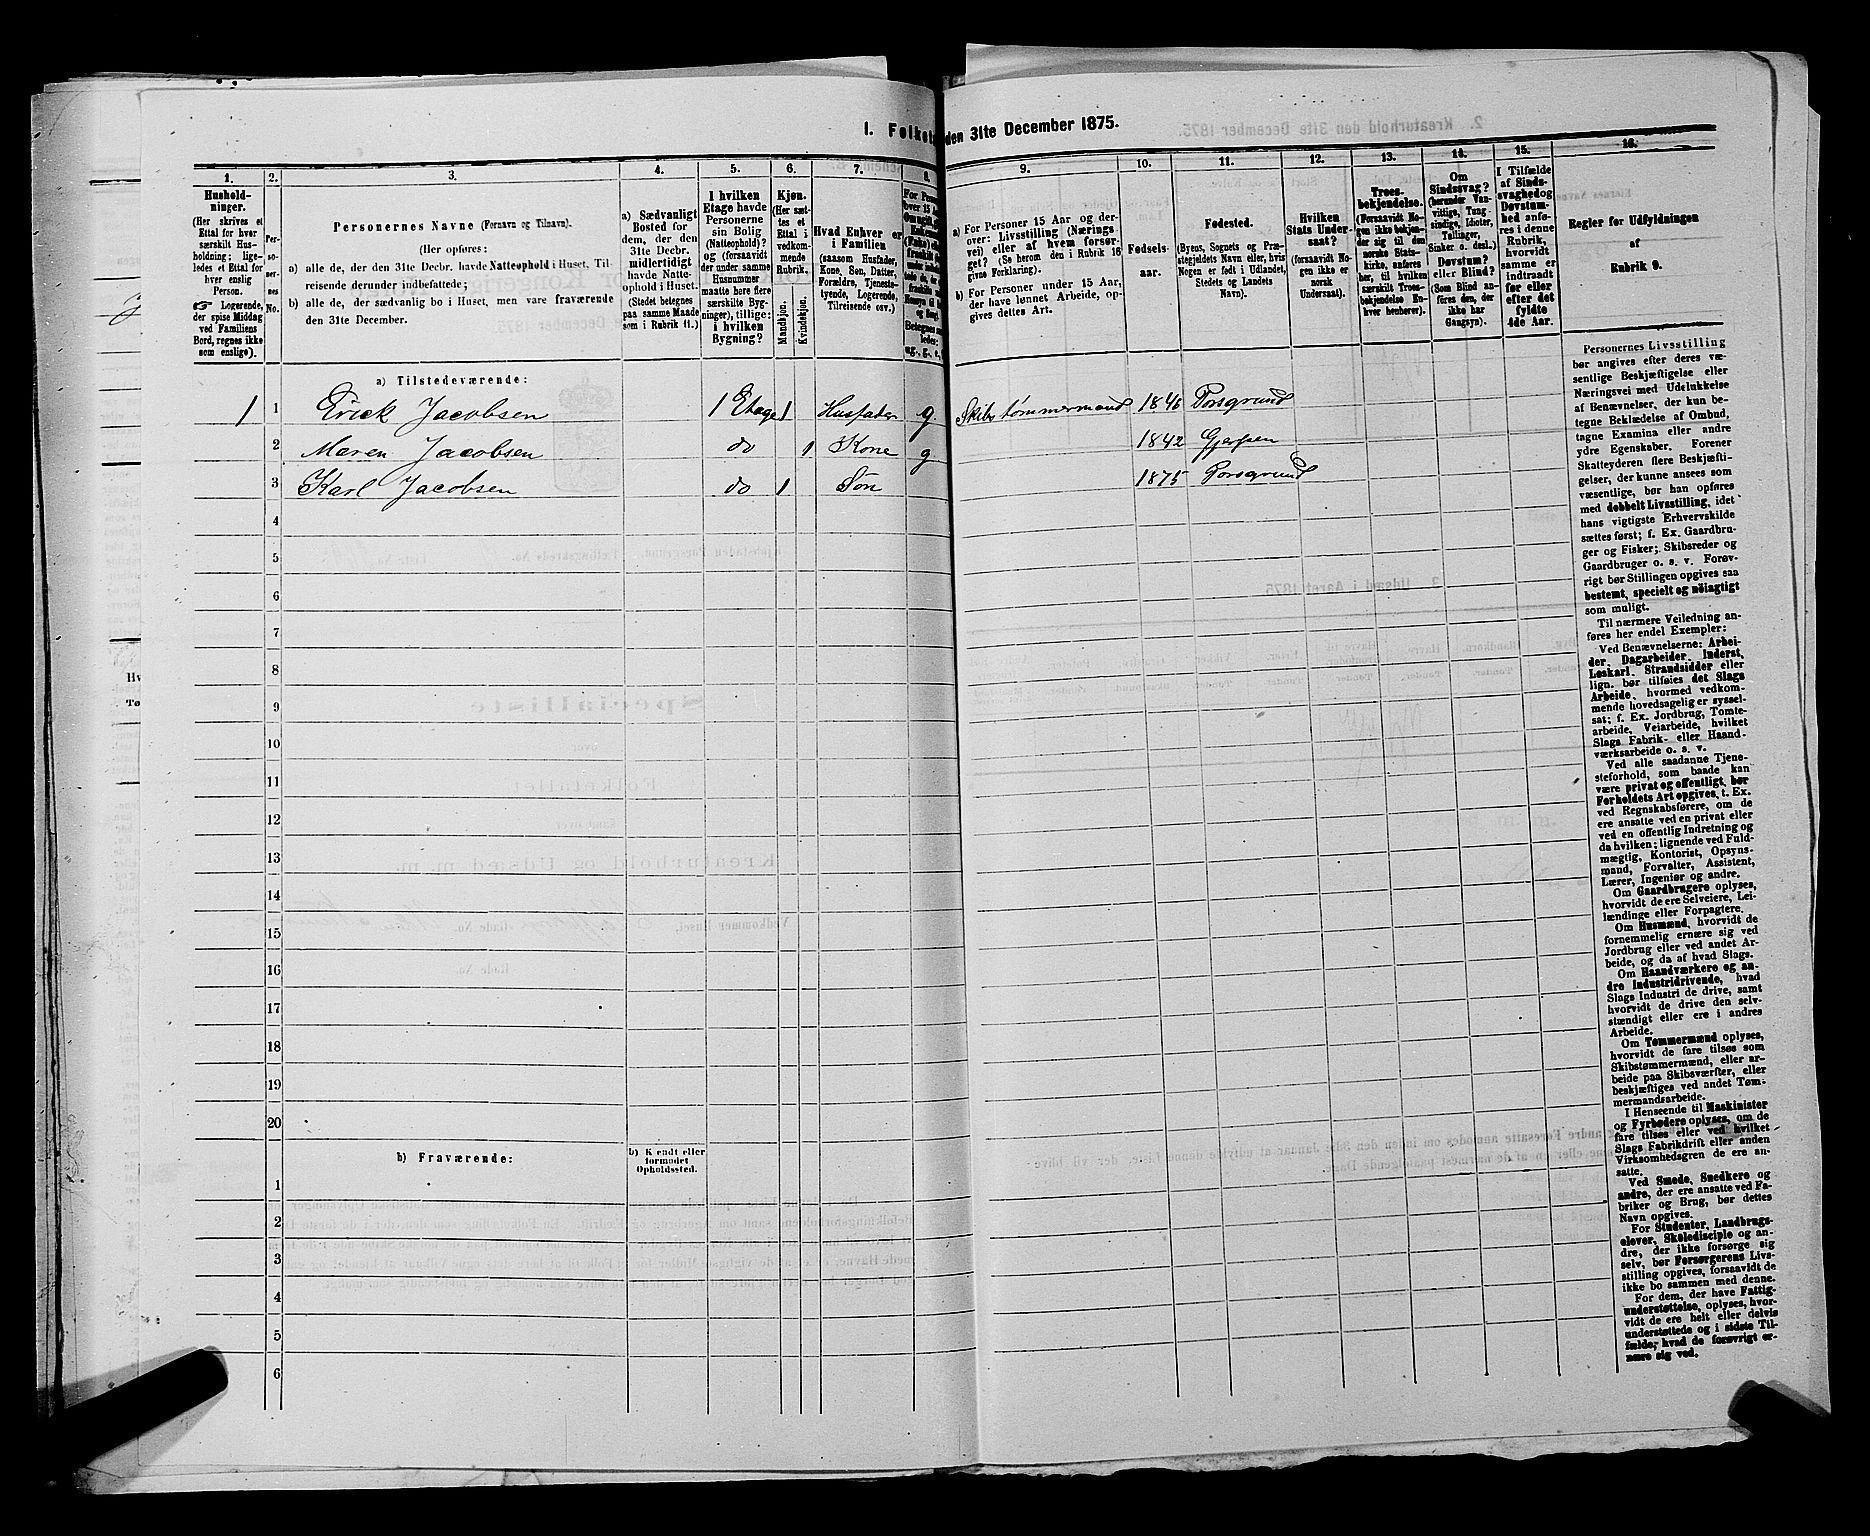 I. Folketæ
den 31te December 1875.
1.
2.
3.
4.
5.
6.
7.
8.
9.
10.
11.
12.
13.
14.
15.
16.
Hushold-
ninger.
(Her skrives et
Ettal for hver
særskilt Hus-
holdning; lige-
ledes et Ettal for
hver enslig
Person.
☞ Logerende,
der spise Middag
ved Familiens
Bord, regnes ikke
som enslige).
Per-
so-
ner-
nes
No.
Personernes Navne (Fornavn og Tilnavn).
(Her opføres:
a) alle de, der den 31te Decbr. havde Natteophold i Huset, Til-
reisende derunder indbefattede;
b) alle de, der sædvanlig bo i Huset, men vare fraværende
den 31te December.
a) Sædvanligt
Bosted for
dem, der den
31te Decbr.
midlertidigt
havde Natte-
ophold i Huset.
(Stedet betegnes
paa samme Maade
som i Rubrik 11.)
I hvilken
Etage havde
Personerne
sin Bolig
(Natteophold)?
og (forsaavidt
der under samme
Husnummer
maatte høre flere
særskilte Byg-
ninger), tillige:
i hvilken
Bygning?
Kjøn.
(Her sæt-
tes et
Ettal i
vedkom-
mende
Rubrik.
Mandkjøn.
Kvindekjøn.
Hvad Enhver er
i Familien
(saasom Husfader,
Kone, Søn, Datter,
Forældre, Tjeneste-
tyende, Logerende,
Tilreisende osv.)
a) For Personer 15 Aar og der-
over: Livsstilling (Nærings
vei) eller af hvem forsør-
get? (Se herom den i Rubrik 16
givne Forklaring).
b) For Personer under 15 Aar,
der have lønnet Arbeide, op-
gives dettes Art.
Fødsels-
aar.
Fødested.
(Byens, Sognets og Præ-
stegjeldets Navn eller, hvis
Nogen er født i Udlandet,
Stedets og Landets
Navn).
Hvilken
Stats Under-
saat?
(forsaavidt No-
gen ikke er
norsk
Undersaat).
Troes-
bekjendelse.
(Forsaavidt No-
gen ikke bekjen-
der sig til den
norske Stats-
kirke, anføres
her, til hvilken
særskilt Troes-
bekjendelse En-
hver henhører).
Om
Sindssvag?
(herunder Van-
vittige, Tung-
sindige, Idioter,
Tullinger,
Sinker o. desl.)
Døvstum?
eller Blind?
(Som Blind an-
føres den, der
ikke har
Gangsyn).
I Tilfælde
af Sinds-
svaghed og
Døvstum-
hed anfø-
res i denne
Rubrik,
hvorvidt
samme er
indtraadt
før eller
efter det
fyldte
4de Aar.
Regler for Udfyldningen
af
Rubrik 9.
a) Tilstedeværende:
1 1 Erick Jacobsen 1 Etage 1 Husfader g Skibstømmermand 1846 Porsgrund
2 Maren Jacobsen do 1 Kone g 1842 Gjerpen
3 Karl Jacobsen do 1 Søn 1875 Porsgrund
4
5
6
7
8
9
10
11
12
13
14
15
16
17
18
19
20
b) Fraværende:
b) Kjendt eller
formodet
Opholdssted.
1
2
3
4
5
6
Personernes Livsstilling
bør angives efter deres væ-
sentlige Beskjæftigelse eller
Næringsvei med Udelukkelse
af Benævnelser, der kun be-
tegne Beklædelse af Ombud,
tagne Examina eller andre
ydre Egenskaber. Forener
Skatteyderen flere Beskjæfti-
gelser, der kunne ansees som
væsentlige, bør han opføres
med dobbelt Livsstilling, idet
hans vigtigste Erhvervskilde
sættes først; f. Ex. Gaardbru-
ger og Fisker; Skibsreder og
Gaardbruger o. s. v. Forøv-
rigt bør Stillingen opgives saa
bestemt, specielt og nöiagtigt
som muligt.
Til nærmere Veiledning an-
føres her endel Exempler:
Ved Benævnelserne: Arbei-
der, Dagarbeider, Inderst,
Løskarl, Strandsidder eller
lign. bør tilføies det Slags
Arbeide, hvormed vedkom-
mende hovedsagelig er syssel-
sat; f. Ex. Jordbrug, Tomte-
arbeide, Veiarbeide, hvilket
Slags Fabrik- eller Haand-
værksarbeide o. s. v.
Ved alle saadanne Tjene-
steforhold, som baade kan
være privat og offentligt, bør
Forholdets Art opgives, t. Ex.
ved Regnskabsførere, om de
ere ansatte ved en privat eller
ved en offentlig Indretning og
da hvilken; lignende ved Fuld-
mægtig, Kontorist, Opsyns-
mand, Forvalter, Assistent,
Lærer, Ingeniør og andre.
Om Gaardbrugere oplyses,
hvorvidt de ere Selveiere, Lei-
lændinge eller Forpagtere.
Om Husmænd, hvorvidt de
fornemmelig ernære sig ved
Jordbrug eller ved andet Ar-
beide, og da af hvad Slags.
Om Haandværkere og an-
dre Industridrivende, hvad
Slags Industri de drive, samt
hvorvidt de drive den selv-
stændigt eller ere i andres
Arbeide.
Om Tømmermænd oplyses,
hvorvidt de fare tilsøs som
Skibstømmermænd, eller ar-
beide paa Skibsværfter, eller
beskjæftiges ved andet Tøm-
mermandsarbeide.
I Henseende til Maskinister
og Fyrbødere oplyses, om de
fare tilsøs eller ved hvilket
Slags Fabrikdrift eller anden
Virksomhedsgren de ere an-
satte.
Ved Smede, Snedkere og
andre, der ere ansatte ved Fa-
briker og Brug, bør dettes
Navn opgives.
For Studenter, Landbrugs-
elever, Skoledisciple og an-
dre, der ikke forsørge sig
selv, bør Forsørgerens Livs-
stilling opgives, forsaavidt de
ikke bo sammen med denne.
For dem, der have Fattig-
understøttelse, oplyses, hvor-
vidt de ere helt eller delvis
understøttede og i sidste Til-
fælde, hvad de forøvrigt er-
nære sig ved.